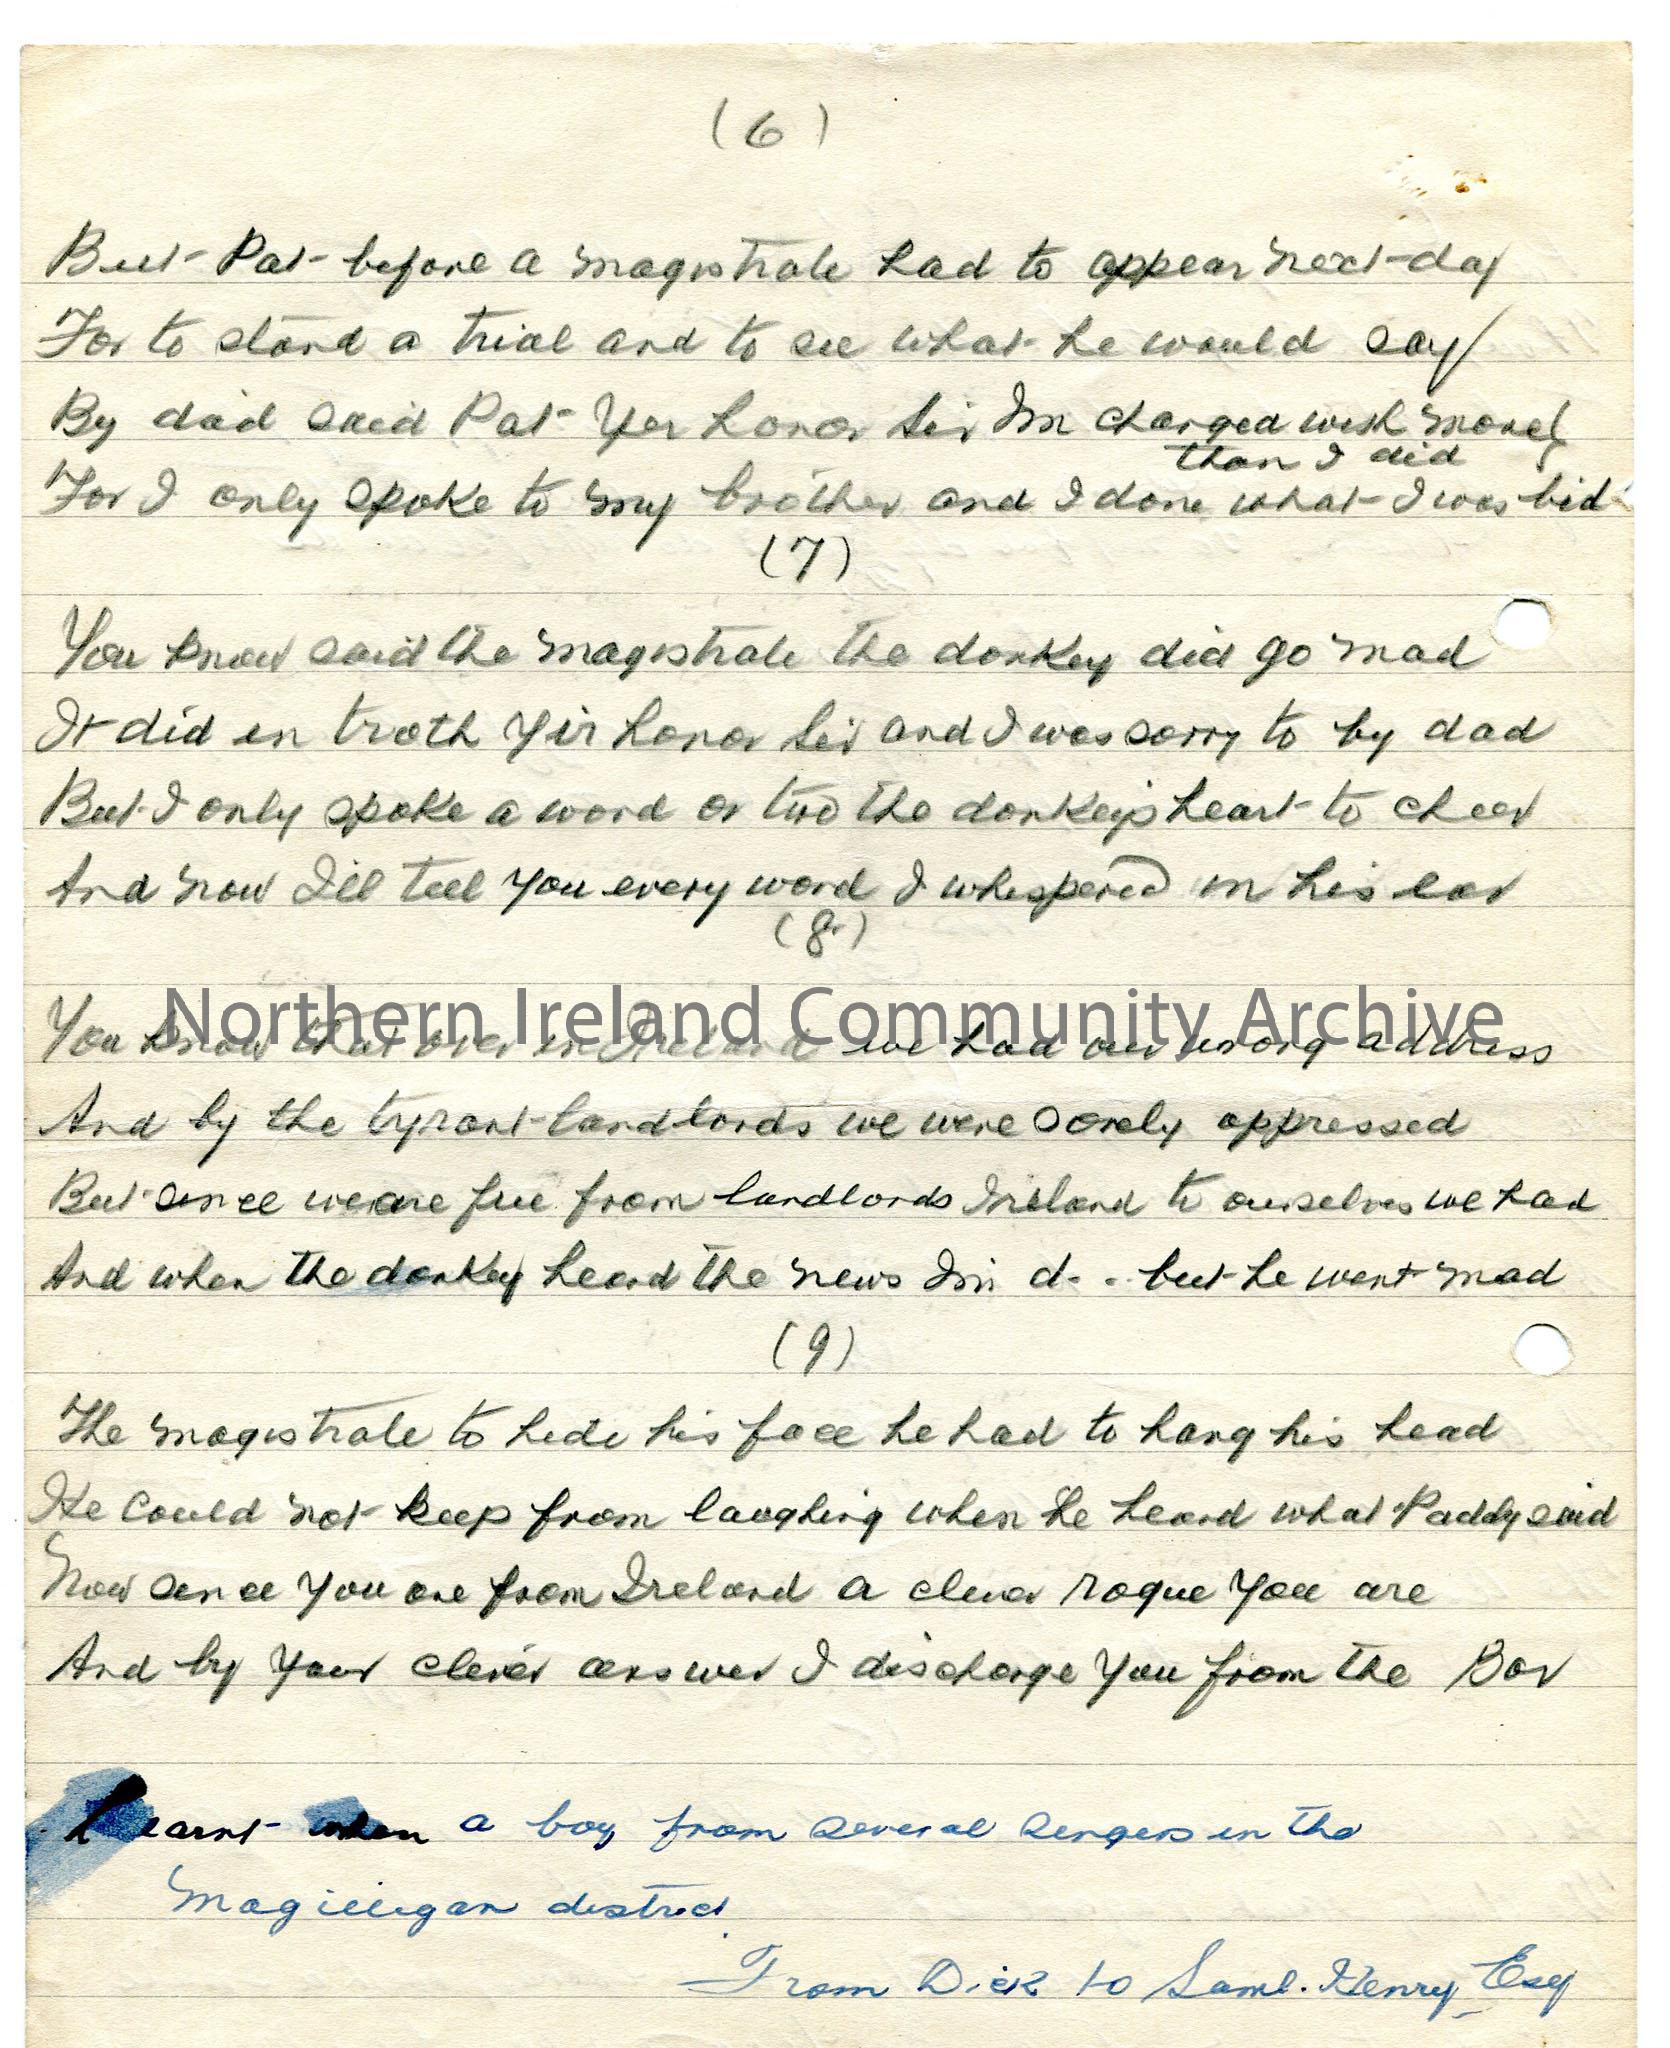 (6)
But Pat before a magistrate had to appear next day
For to stand a trial and to see what he would say
By dad said Pat Yer honor Sir Im charged with more
than I did
For I only spoke to my brother and I done what I was bid
(7)
You know said the magistrate the donkey did go mad
It did in troth Yir honor Sir and I was sorry to by dad
But I only spoke a word or two the donkeys heart to cheer
And now Ill tell you every word I whispered in his ear
(8)
Northern Ireland Community Archive
You know that over in Ireland we had our wrong address
And by the tyrant landlords we were sorely oppressed
But since we are free from landlords Ireland to ourselves we had
And when the donkey heard the news Im d- - but he went mad
(9)
The magistrate to hide his face he had to hang his head
He could not keep from laughing when he heard what Paddy said
Now since you are from Ireland a clever rogue you are
And by your clever answer I discharge you from the Bar
Learnt when a boy from several singers in the
Magilligan district
From Dick to Saml. Henry Esq